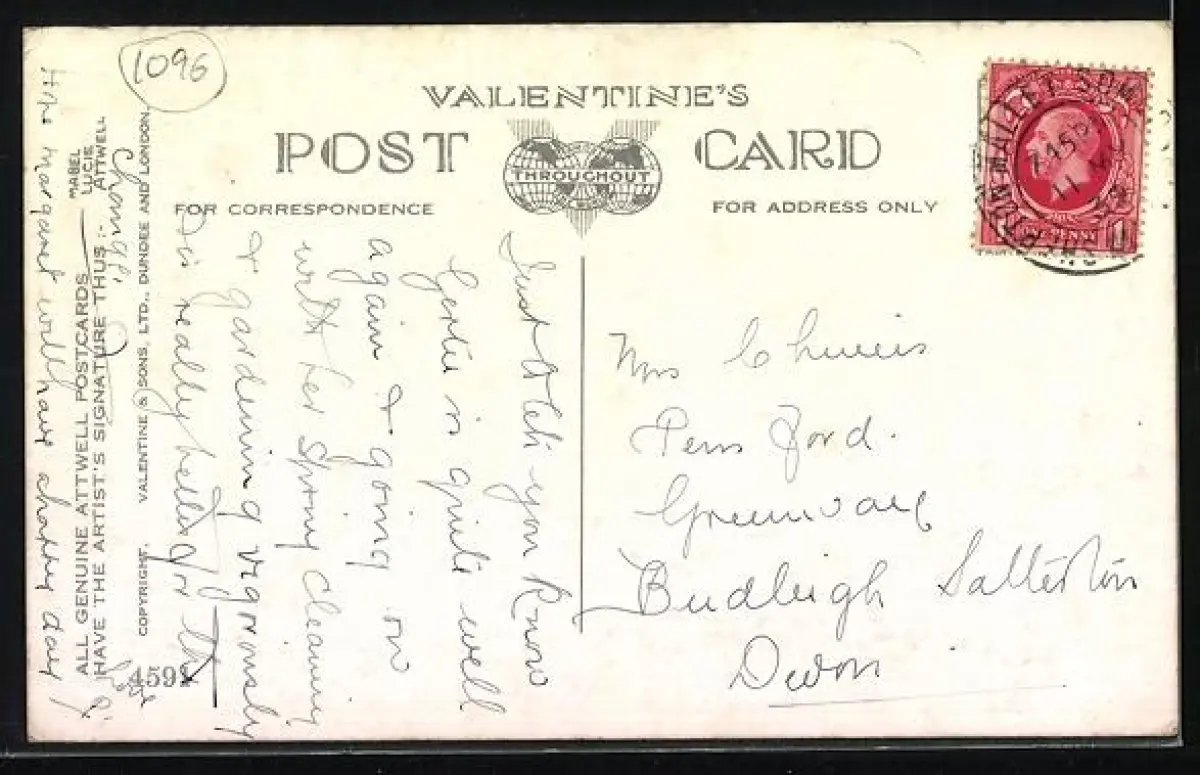 1096
VALENTINE'S
POST CARD
THROUGHOUT
FOR CORRESPONDENCE
FOR ADDRESS ONLY
Just to let you know
Gertie is quite well
again & going on
with her Spring Cleaning
& gardening vigorously
& is really better for the
change
I hope Margaret will have a happy day
ALL GENUINE ATTWELL POSTCARDS
HAVE THE ARTIST'S SIGNATURE THUS:-
MABEL
LUCIE
ATTWELL
COPYRIGHT. VALENTINE & SONS, LTD., DUNDEE AND LONDON.
4591
Mrs
Penn Ford.
Greenway
Budleigh Salterton
Devon
MALLET SOM
7 15 P
11
ONE PENNY